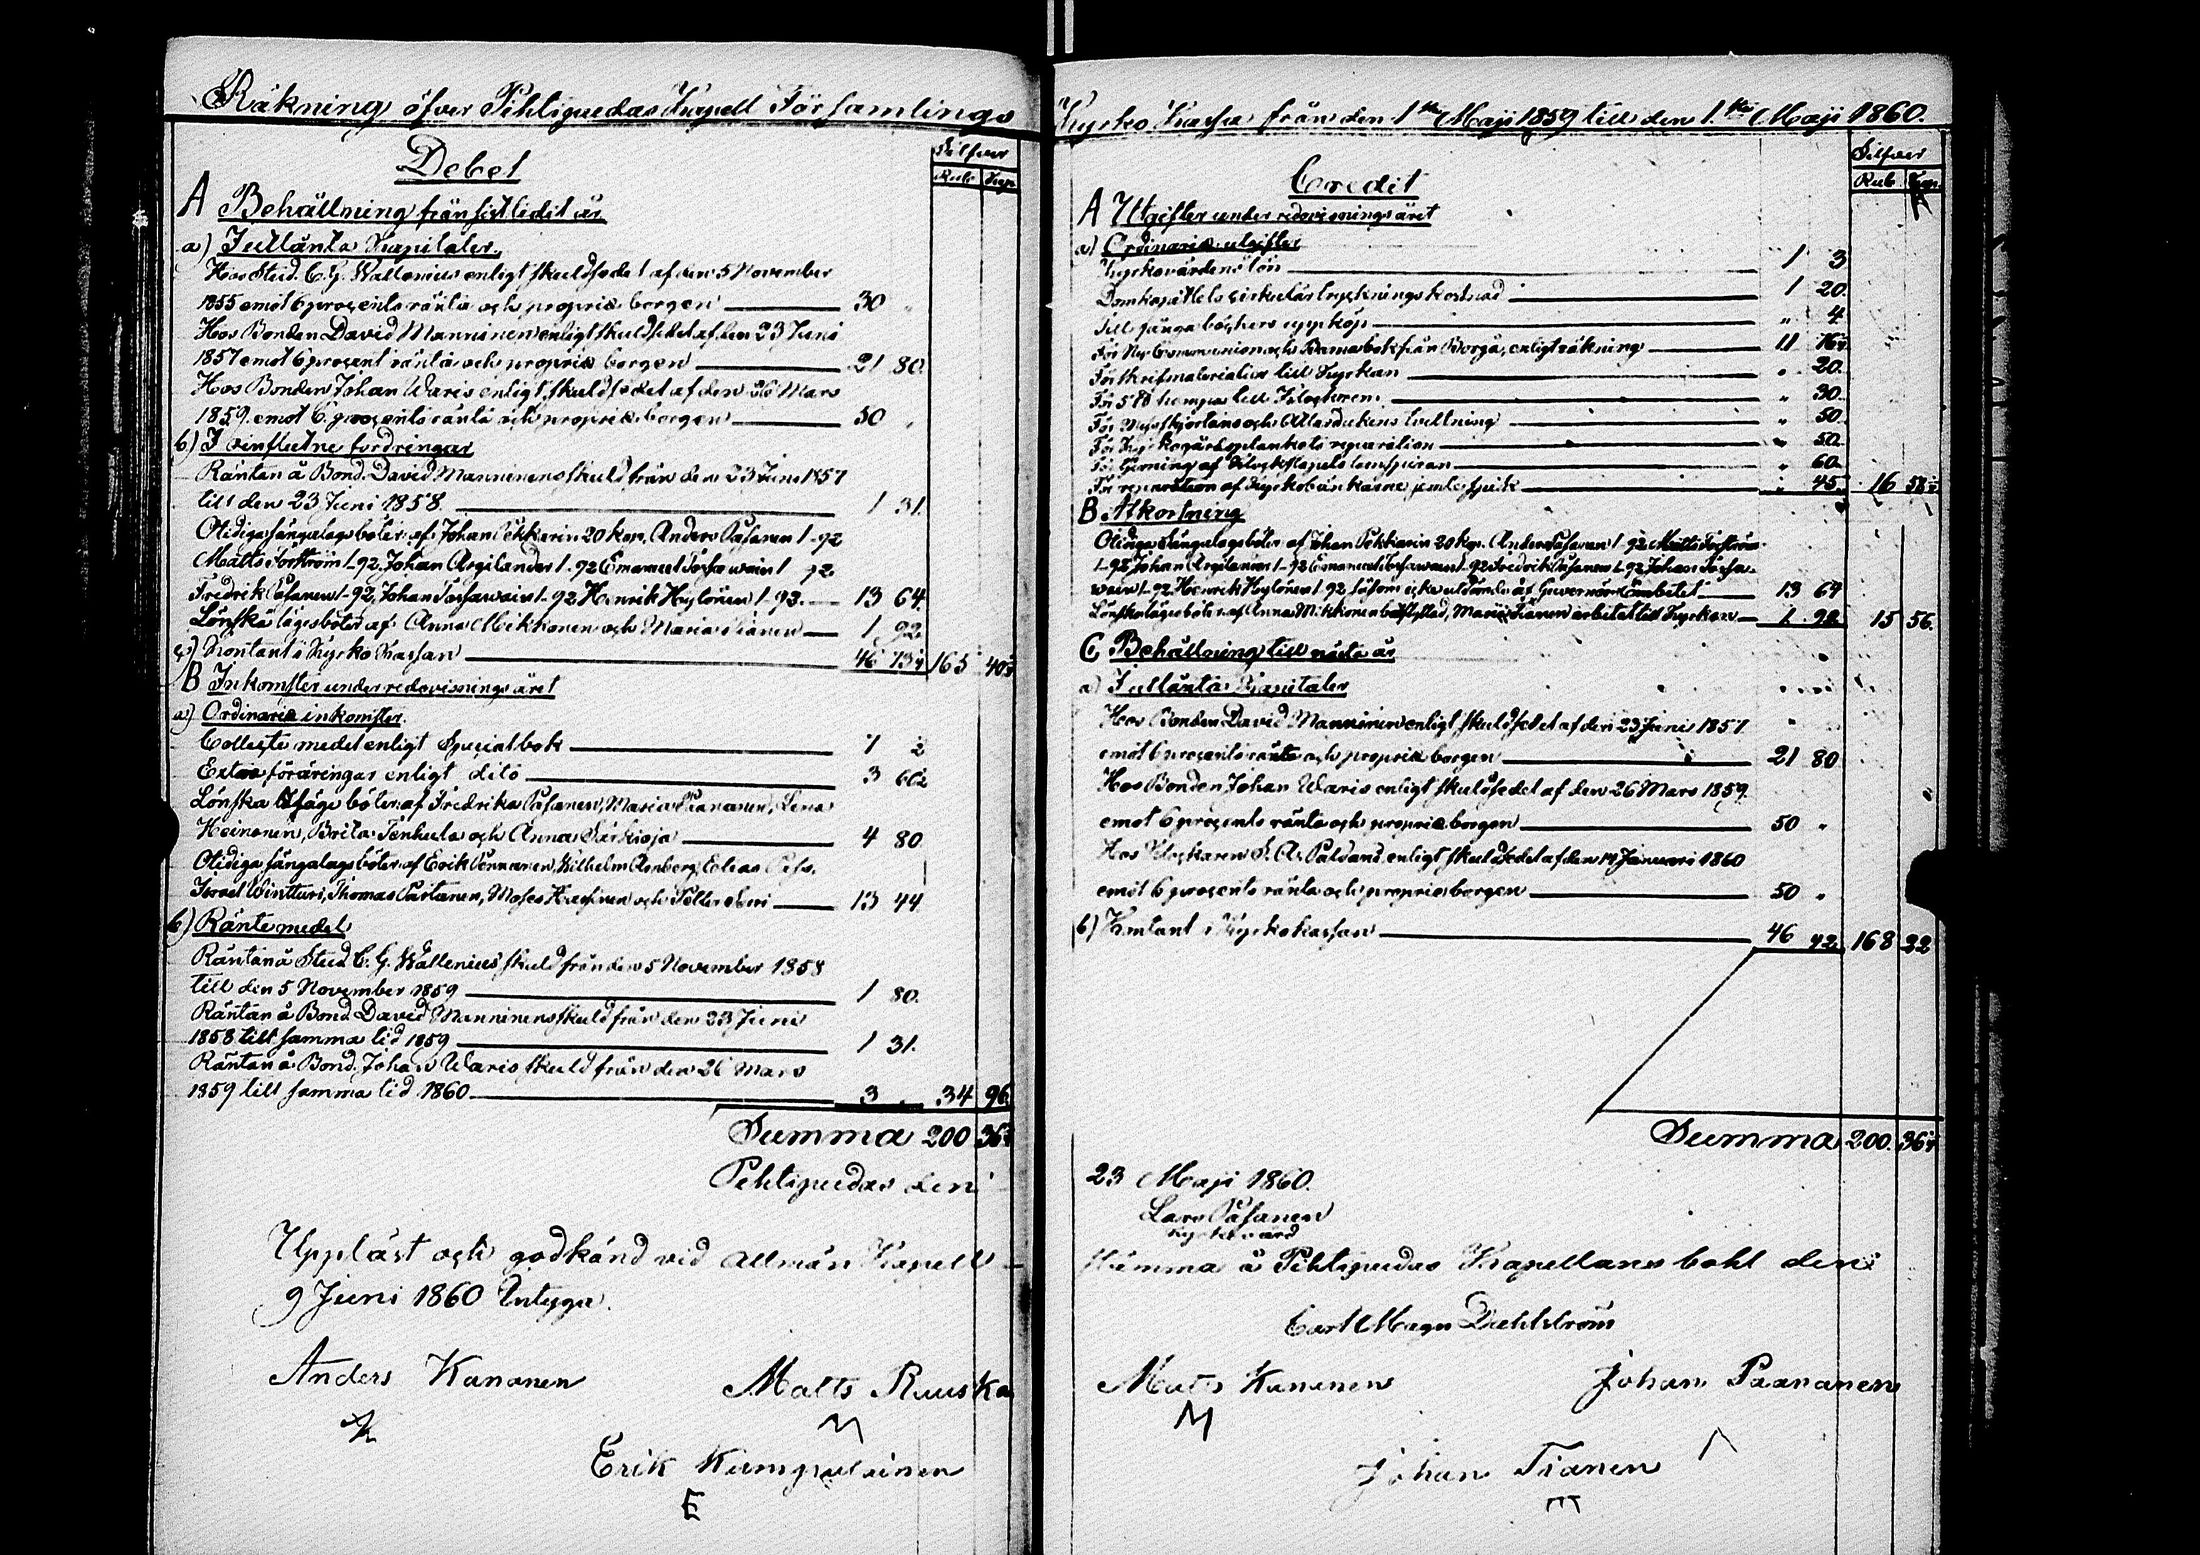 Räkning öfver Pihtipudas Kapell Församlings
Debet
Silfver
Rub. Kop.
A Behållning från sistledit år
a) Inllänta Kapitaler.
Hos Stud. C. G. Wallenius enligt skuldsedel af den 5 November
1855 emot 6 procents ränta och proprie borgen 30 "
Hos Bonden David Manninen enligt skuldsedel af den 23 Juni
1857 emot 6 procent ränta och proprie borgen 21 80.
Hos Bonden Johan Waris enligt skuldsedel af den 26 Mars
1859. emot 6. procents ränta och proprie borgen 50 "
b) I oinflutne fordringar
Räntan å Bond. David Manninens skuld från den 23 Juni 1857
till den 23 Juni 1858. 1 31.
Otidiga sängalagsböter af Johan Pekkarin 20 kop, Anders Pasanen 1-92
Matts Torström 1-92, Johan Argilander 1-92 Emanuel
Fredrik Pasanen 1-92, Johan 1-92 Henrik Hytönen 1-92. 13 64.
Lönska lägesböter af Anna Mikkonen och Maria Tianen 1 92.
c) Kontant i Kyrko Kassan 46 73½ 165 40½
B Inkomster under redovisnings året
a) Ordinarie inkomster.
Collecte medel enligt Specialbok 7 2
Extra föräringar enligt dito 3 60½
Lönska lägesböter af Fredrika Pasanen, Maria Paananen, Lena
Heinonen, Brita Tenhula och Anna Särkioja 4 80
Otidiga sängalagsböter af Erik Wilhelm Elias
Israel Wintturi, Thomas Partanen, Moses och Petter 13 44
b) Räntemedel
Räntan å Stud C. G. Wallenius skuld från den 5 November 1858
till den 5 November 1859 1 80.
Räntan å Bond. David Manninens skuld från den 23 Juni
1858 till samma tid 1859 1 31.
Räntan å Bond. Johan Waris skuld från den 26 Mars
1859 till samma tid 1860 3 " 34 96
Summa 200 36½
Pihtipudas den
Uppläst och godkänd vid allmän Kapell
9 Juni 1860 Intyga.
Anders Kananen
Matts Ruuska
M
Erik Kumpulainen
E
Kyrko Kassa från den 1sta Maji 1859 till den 1.sta Maji 1860.
Credit
Silfver
Rub Kop.
A Utgifter under redovisningsåret
a) Ordinarie utgifter
Kyrkovärdens lön 1 3
Domkapitlets cirkulär tryckningskostnad 1 20.
Till fånga böckers uppköp " 4
För Nyb Communion och Barnabok från Borgå, enligt räkning 11 76½
För skrifmaterialier till Kyrkan " 20.
För 5 ℔ hampa till Klockoren " 30.
För Messskjortans och Altardukens tvättning " 50
För Kyrkogårdsplankets reparation " 50.
För Gerning af Klockstapels " 60.
För reparation af Kyrkobänkarne jemte spik " 45. 16 58½
B Afkortning
Otidiga Sängalagsböter af Johan Pekkarin 20 kop. Anders Pasanen 1-92 Matts Torström
1-92 Johan Argilander 1-92 Emanuel 1-92 Fredrik Pasanen 1-92 Johan
1-92 Henrik Hytönen 1.92 såsom icke utdömde af Guvernörsämbetet 13 64
Lönska lägesböter af Anna Mikkonen Maria Tianen arbetat till Kyrkan 1 92 15 56.
C Behållning till nästa år
a) Inllänta Kapitaler
Hos Bonden David Manninen enligt skuldsedel af den 23 Juni 1857
emot 6 procents ränta och proprie borgen 21 80
Hos Bonden Johan Waris enligt skuldsedel af den 26 Mars 1859.
emot 6 procents ränta och proprie borgen 50 "
Hos Klockaren enligt skuldsedel af den 14 Januari 1860
emot 6 procents ränta och proprie borgen 50 "
b) Kontant i Kyrkokassan 46 42 168 22
Summa 200. 36½
23 Maji 1860.
Lars Pasanen
Kyrkovärd
stämma å Pihtipudas Kapellans bohl den
Carl Magn Dahlström
Matts Kananen
M
Johan Paananen
Johan Tianen